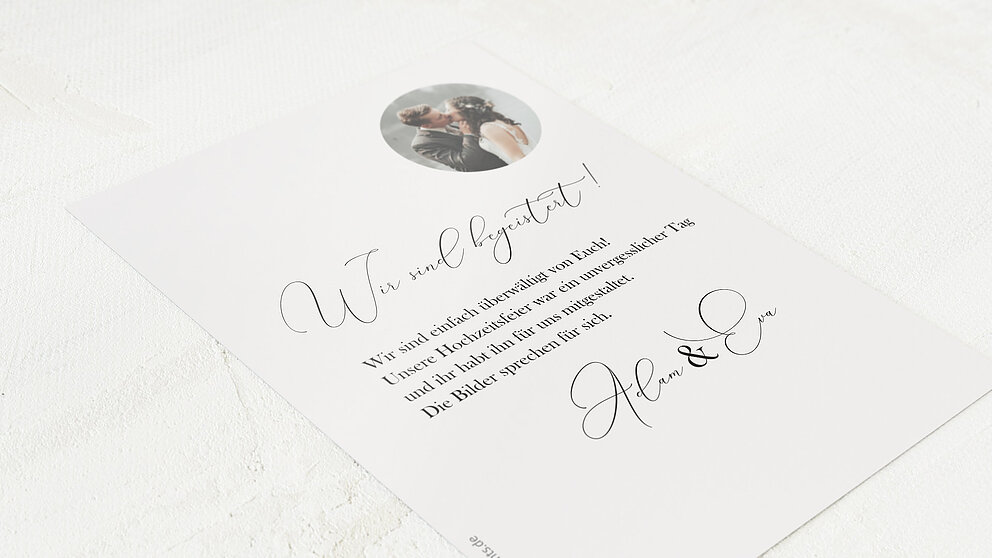 Wir sind begeistert!
Wir sind einfach überwältigt von Euch!
Unsere Hochzeitsfeier war ein unvergesslicher Tag
und ihr habt ihn für uns mitgestaltet.
Die Bilder sprechen für sich.
Adam & Eva